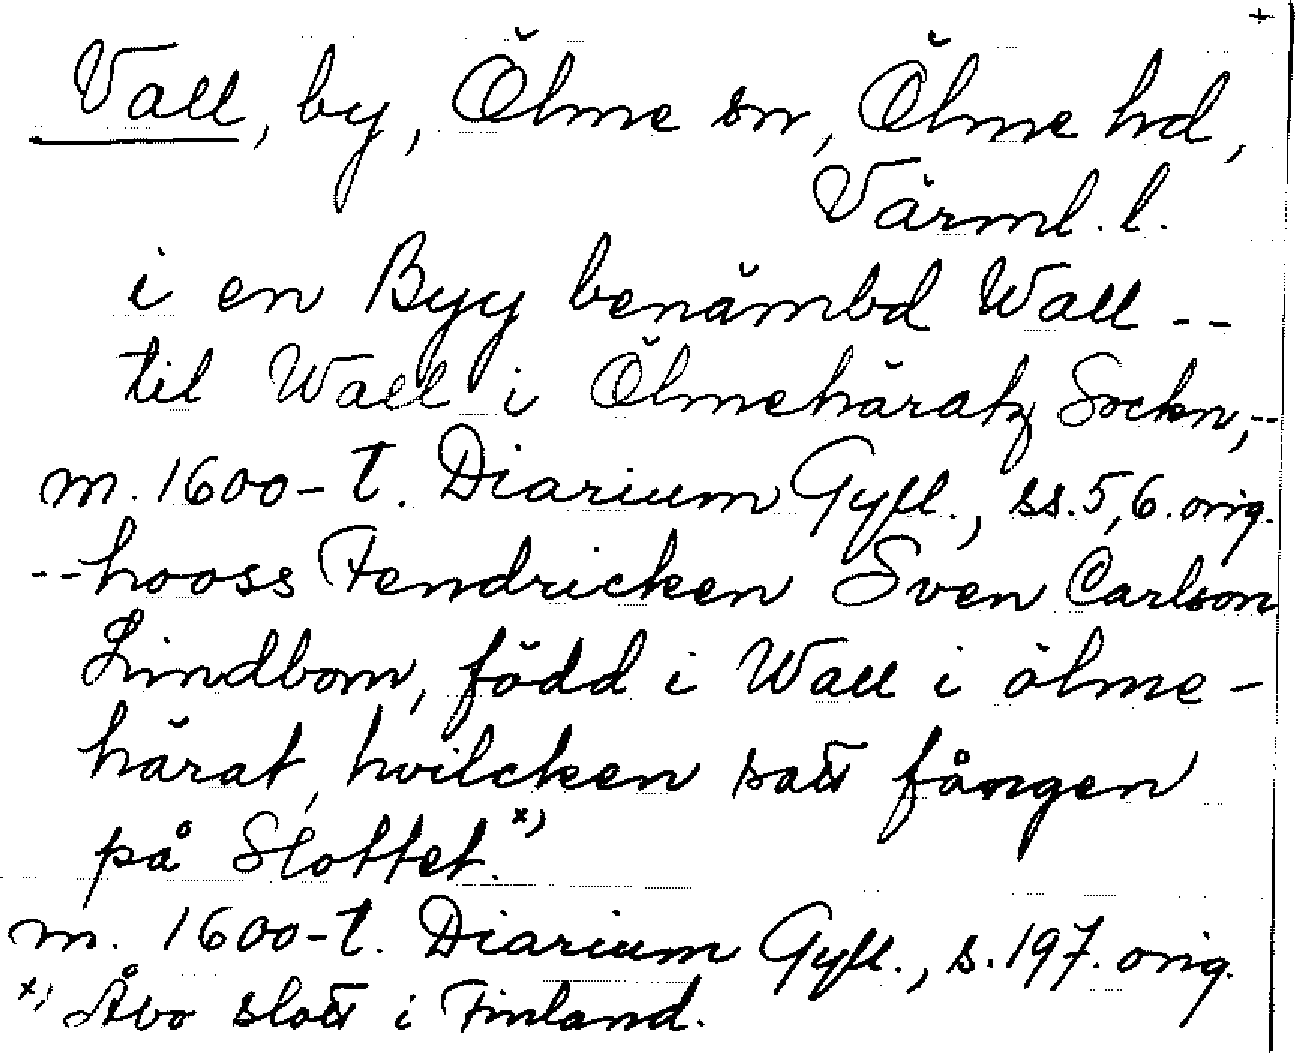 +
Vall, by, Ölme sn, Ölme hd,
Värml. l.
i en Byy benämbd Wall --
til Wall i Ölmehäratz Sockn,--
m. 1600-t. Diarium Gyll., ss. 5, 6. orig.
--hooss Fendricken Sven Carlson
Lindbom, född i Wall i ölme-
härat, hvilcken satt fången
på Slottet.x)
m. 1600-t. Diarium Gyll., s. 197. orig.
x) Åbo slott i Finland.